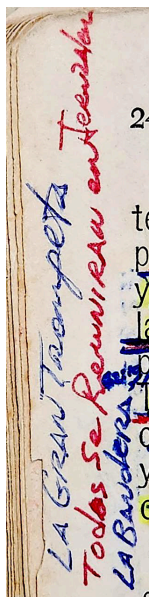 LA GRAN Trompeta
Todos se Reuniran en Jerusalen
LA BANDERA
24
te
p
y
la
p